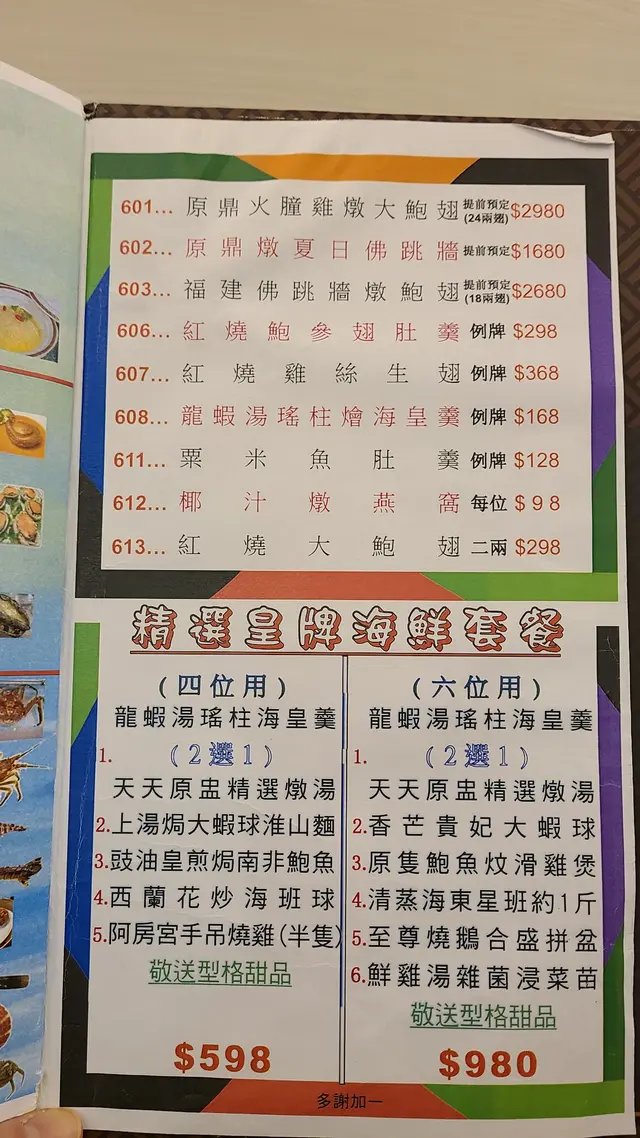 601... 原鼎火朣雞燉大鮑翅 提前預定(24兩翅) $2980
602... 原鼎燉夏日佛跳牆 提前預定 $1680
603... 福建佛跳牆燉鮑翅 提前預定(18兩翅) $2680
606... 紅燒鮑參翅肚羹 例牌 $298
607... 紅燒雞絲生翅 例牌 $368
608... 龍蝦湯瑤柱燴海皇羹 例牌 $168
611... 粟米魚肚羹 例牌 $128
612... 椰汁燉燕窩 每位 $98
613... 紅燒大鮑翅 二兩 $298
精選皇牌海鮮套餐
(四位用)
龍蝦湯瑤柱海皇羹
1. (2選1)
天天原盅精選燉湯
2.上湯焗大蝦球淮山麵
3.豉油皇煎焗南非鮑魚
4.西蘭花炒海班球
5.阿房宮手吊燒雞(半隻)
敬送型格甜品
$598
(六位用)
龍蝦湯瑤柱海皇羹
1. (2選1)
天天原盅精選燉湯
2.香芒貴妃大蝦球
3.原隻鮑魚炆滑雞煲
4.清蒸海東星班約1斤
5.至尊燒鵝合盛拼盆
6.鮮雞湯雜菌浸菜苗
敬送型格甜品
$980
多謝加一